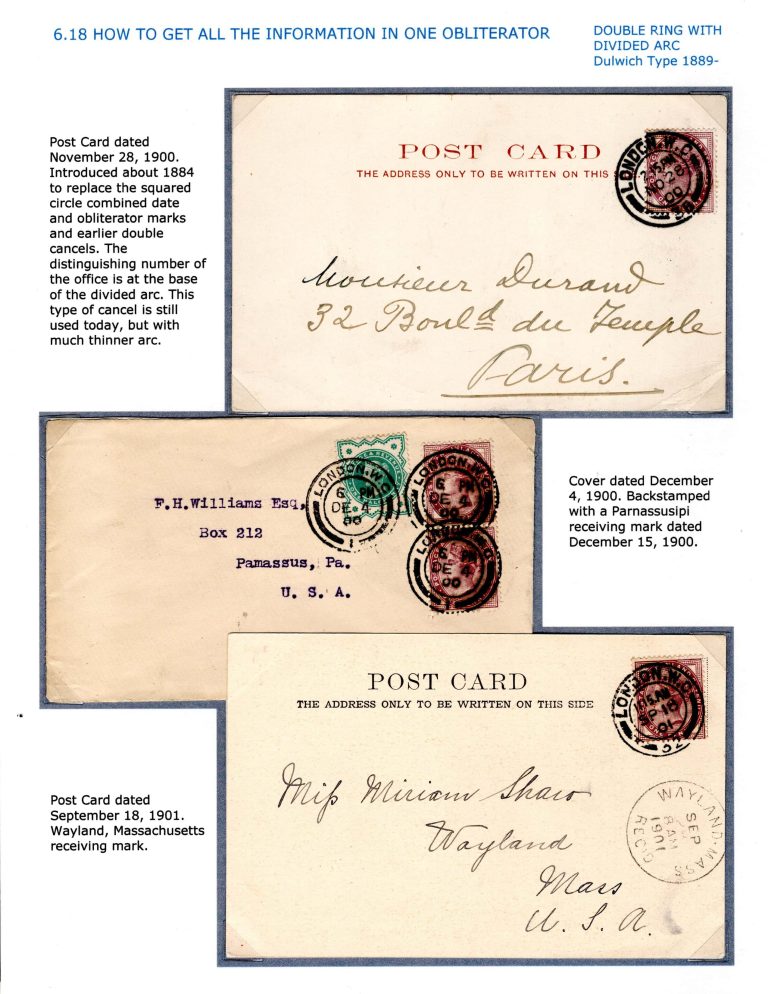 6.18 HOW TO GET ALL THE INFORMATION IN ONE OBLITERATOR
DOUBLE RING WITH
DIVIDED ARC
Dulwich Type 1889-
Post Card dated
November 28, 1900.
Introduced about 1884
to replace the squared
circle combined date
and obliterator marks
and earlier double
cancels. The
distinguishing number of
the office is at the base
of the divided arc. This
type of cancel is still
used today, but with
much thinner arc.
POST CARD
THE ADDRESS ONLY TO BE WRITTEN ON THIS
LONDON.W.C
NO 28
00
Monsieur Durand
32 Bould du Temple
Paris.
F.H.Williams Esq,
Box 212
Pamassus, Pa.
U. S. A.
LONDON.W.C
6 PM
DE 4
00
1
LONDON.W.C
6 PM
DE 4
00
LONDON
6 PM
DE 4
00
1
Cover dated December
4, 1900. Backstamped
with a Parnassusipi
receiving mark dated
December 15, 1900.
POST CARD
THE ADDRESS ONLY TO BE WRITTEN ON THIS SIDE
LONDON.W.C
SP 18
01
32
Miss Miriam Shaw
Wayland
Mass
U. S. A.
WAYLAND.MASS
SEP
8AM
1901
REC'D
Post Card dated
September 18, 1901.
Wayland, Massachusetts
receiving mark.